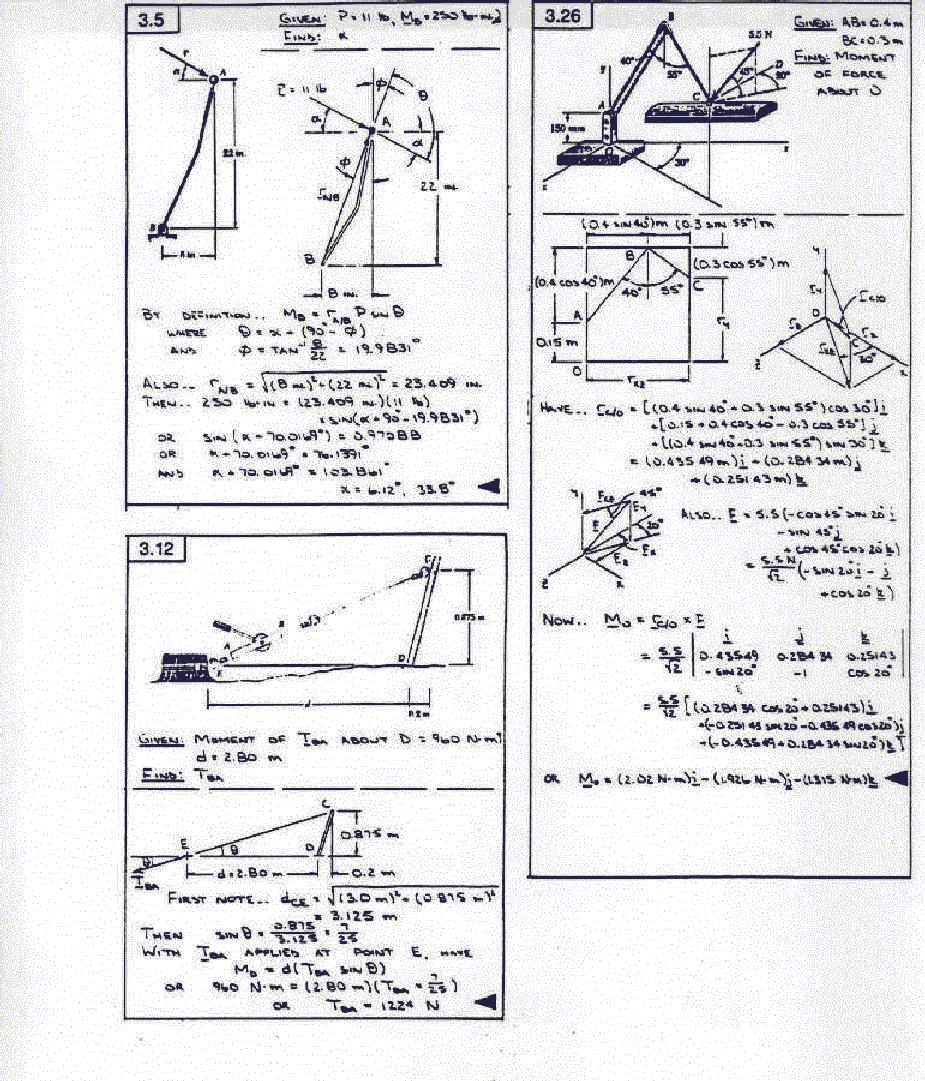 3.5
GIVEN: P = 11 lb, M_B = 250 lb·in.
FIND: α
P
α
A
22 in.
B
8 in.
P = 11 lb
φ
θ
α
A
α
φ
r_A/B
22 IN.
B
8 IN.
BY DEFINITION.. M_B = r_A/B P SIN θ
WHERE θ = α + (90° - φ)
AND φ = TAN⁻¹ 8/22 = 19.9831°
ALSO.. r_A/B = √(8 IN.)² + (22 IN.)² = 23.409 IN.
THEN.. 250 lb·in = (23.409 IN.)(11 lb)
× SIN(α + 90° - 19.9831°)
OR SIN (α + 70.0169°) = 0.97088
OR α + 70.0169° = 76.1391°
AND α + 70.0169° = 103.861°
α = 6.12°, 33.8°
3.12
C
0.875 m
B
A
E
D
d
0.2 m
GIVEN: MOMENT OF T_BA ABOUT D = 960 N·m
d = 2.80 m
FIND: T_BA
C
0.875 m
E
θ
D
θ
d = 2.80 m
0.2 m
T_BA
FIRST NOTE.. d_CE = √(3.0 m)² + (0.875 m)²
= 3.125 m
THEN SIN θ = 0.875/3.125 = 7/25
WITH T_BA APPLIED AT POINT E, HAVE
M_D = d(T_BA SIN θ)
OR 960 N·m = (2.80 m)(T_BA × 7/25)
OR T_BA = 1224 N
3.26
GIVEN: AB = 0.4 m
BC = 0.3 m
FIND: MOMENT
OF FORCE
ABOUT O
B
5.5 N
40°
55°
45°
D
20°
y
A
C
150 mm
O
x
30°
z
(0.4 SIN 40°)m (0.3 SIN 55°)m
B
(0.3 COS 55°)m
(0.4 COS 40°)m
40°
55°
C
A
r_y
0.15 m
O
r_xz
y
r_y
r_C/O
O
r_z
r_x
r_xz
C
30°
z
x
HAVE.. r_C/O = [(0.4 SIN 40° + 0.3 SIN 55°) COS 30°] i
+ [0.15 + 0.4 COS 40° - 0.3 COS 55°] j
+ [(0.4 SIN 40° + 0.3 SIN 55°) SIN 30°] k
= (0.43549 m) i + (0.28434 m) j
+ (0.25143 m) k
y
F_xz
45°
F_y
F
20°
F_x
F_z
z
x
ALSO.. F = 5.5 (-COS 45° SIN 20° i
- SIN 45° j
+ COS 45° COS 20° k)
= 5.5 N/√2 (-SIN 20° i - j
+ COS 20° k)
NOW.. M_O = r_C/O × F
i j k
= 5.5/√2 | 0.43549 0.28434 0.25143 |
-SIN 20° -1 COS 20°
= 5.5/√2 [(0.28434 COS 20° + 0.25143) i
+ (-0.25143 SIN 20° - 0.43549 COS 20°) j
+ (-0.43549 + 0.28434 SIN 20°) k]
OR M_O = (2.02 N·m) i - (1.926 N·m) j - (1.315 N·m) k